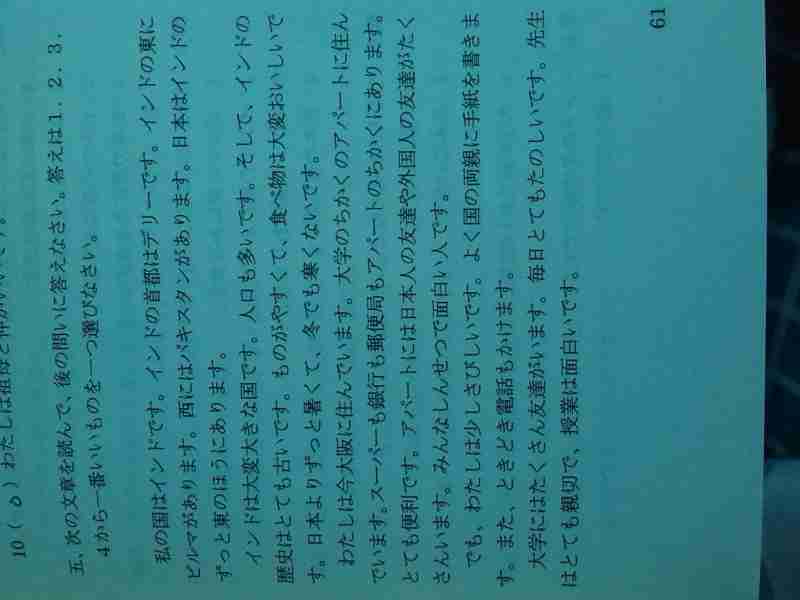 10(o)わたしは祖母と仲がいいです。
五、次の文章を読んで、後の問いに答えなさい。答えは1．2．3．
4から一番いいものを一つ選びなさい。
私の国はインドです。インドの首都はデリーです。インドの東に
ビルマがあります。西にはパキスタンがあります。日本はインドの
ずっと東のほうにあります。
インドは大変大きな国です。人口も多いです。そして、インドの
歴史はとても古いです。ものがやすくて、食べ物は大変おいしいで
す。日本よりずっと暑くて、冬でも寒くないです。
わたしは今大阪に住んでいます。大学のちかくのアパートに住ん
でいます。スーパーも銀行も郵便局もアパートのちかくにあります。
とても便利です。アパートには日本人の友達や外国人の友達がたく
さんいます。みんなしんせつで面白い人です。
でも、わたしは少しさびしいです。よく国の両親に手紙を書きま
す。また、ときどき電話もかけます。
大学にはたくさん友達がいます。毎日とてもたのしいです。先生
はとても親切で、授業は面白いです。
61